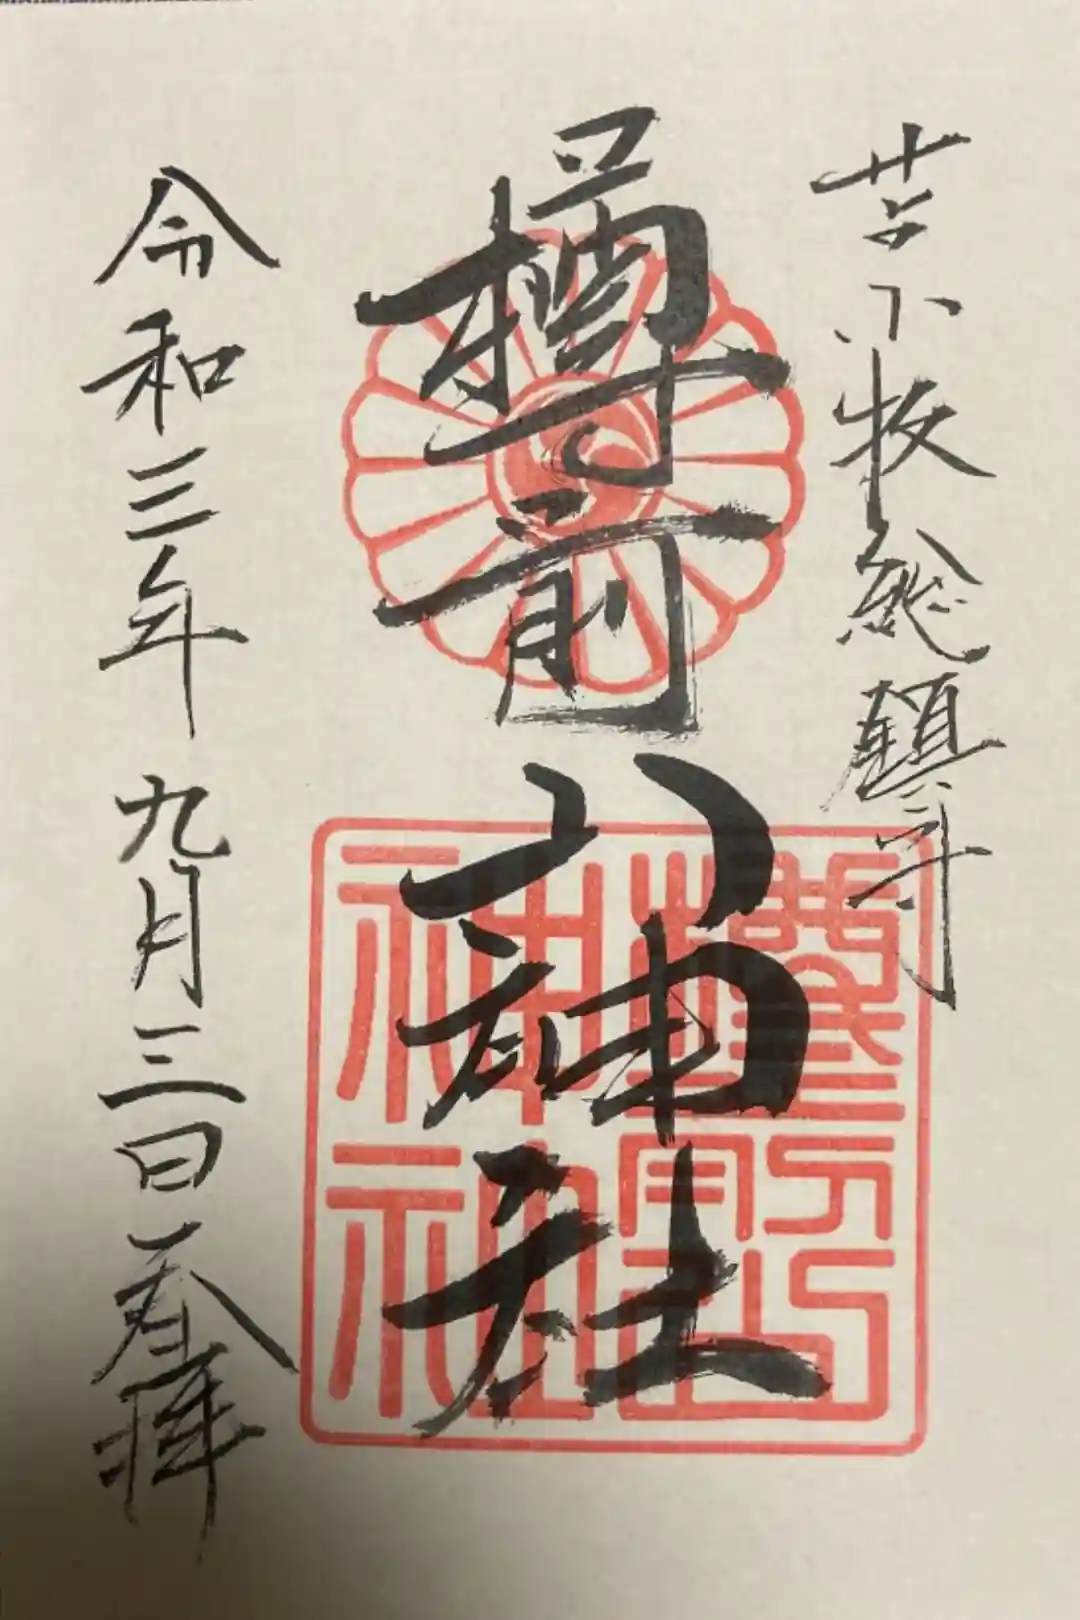 苫小牧総鎮守
樽前神社
樽前神社
令和三年九月三日参拝